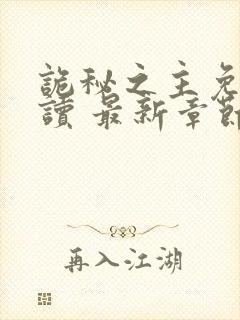 詭秘之主免
讀 最新章節
再入江湖